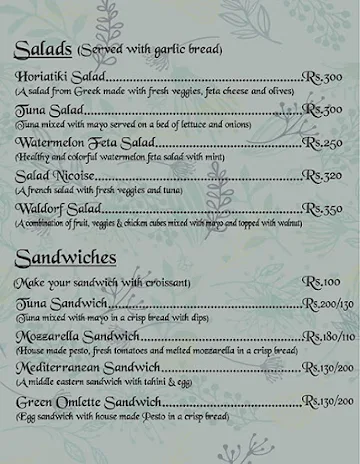 Salads (Served with garlic bread)
Horiatiki Salad..........................................Rs.300
(A salad from Greek made with fresh veggies, feta cheese and olives)
Tuna Salad................................................Rs.300
(Tuna mixed with mayo served on a bed of lettuce and onions)
Watermelon Feta Salad..............................Rs.250
(Healthy and colorful watermelon feta salad with mint)
Salad Nicoise.............................................Rs.320
(A french salad with fresh veggies and tuna)
Waldorf Salad...........................................Rs.350
(A combination of fruit, veggies & chicken cubes mixed with mayo and topped with walnut)
Sandwiches
(Make your sandwich with croissant) Rs.100
Tuna Sandwich.........................................Rs.200/130
(Tuna mixed with mayo in a crisp bread with dips)
Mozzarella Sandwich.................................Rs.180/110
(House made pesto, fresh tomatoes and melted mozzarella in a crisp bread)
Mediterranean Sandwich............................Rs.130/200
(A middle eastern sandwich with tahini & egg)
Green Omlette Sandwich...........................Rs.130/200
(Egg sandwich with house made Pesto in a crisp bread)